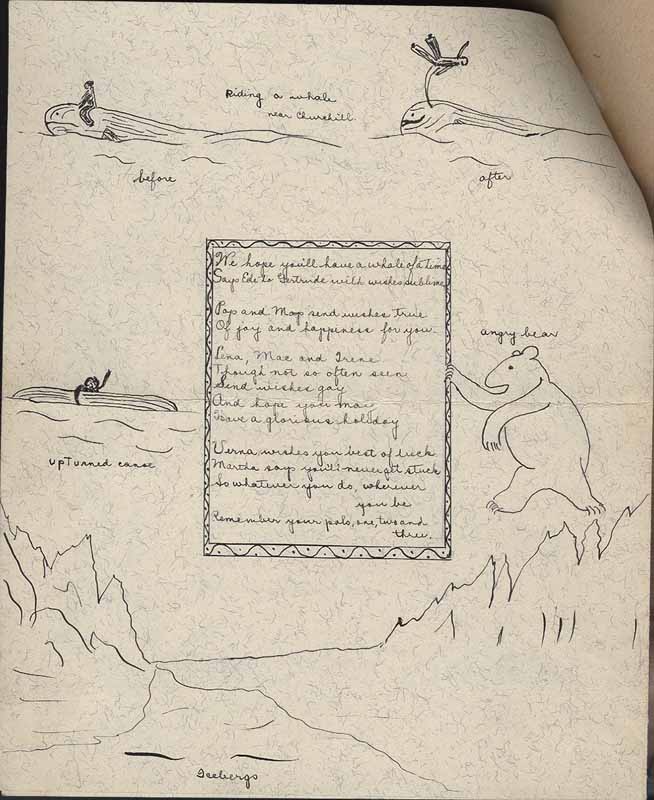 Riding a whale
near Churchill
before
after
We hope you'll have a whale of a time
Says Ede to Gertrude with wishes sublime
Pop and Mop send wishes true
Of joy and happiness for you.
angry bear
Lena, Mae and Irene
Though not so often seen
Send wishes gay
And hope you may
Have a glorious holiday
upturned canoe
Verna wishes you best of luck
Martha says you'll never get stuck
So whatever you do, wherever
you be
Remember your pals, one, two and
three.
Icebergs